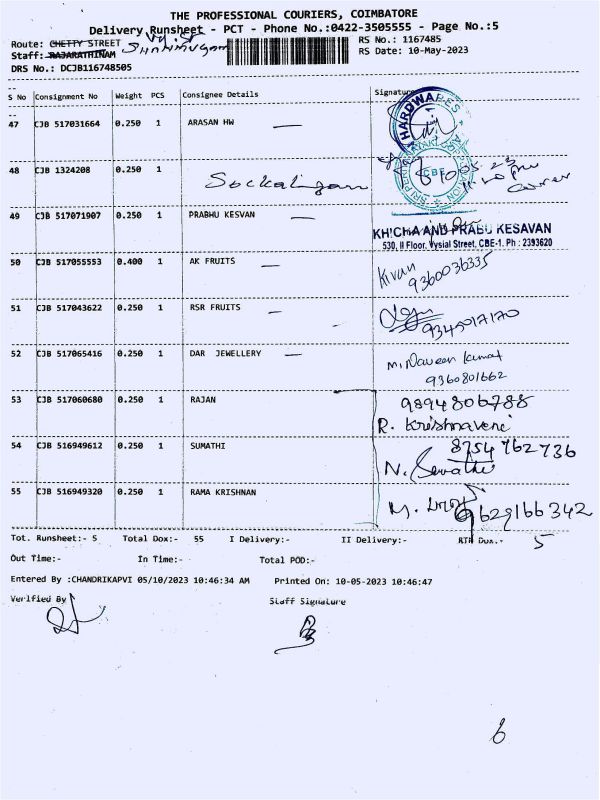 THE PROFESSIONAL COURIERS, COIMBATORE
Delivery Runsheet - PCT - Phone No.:0422-3505555 - Page No.:5
Route: CHETTY STREET
Staff: RAJARATHINAM Shanmugam
DRS No.: DCJB116748505
RS No.: 1167485
RS Date: 10-May-2023
S No Consignment No Weight PCS Consignee Details Signature
47 CJB 517031664 0.250 1 ARASAN HW
HARDWARES
CBE
48 CJB 1324208 0.250 1 Sockalingam
49 CJB 517071907 0.250 1 PRABHU KESVAN
KHICHA AND PRABU KESAVAN
530, II Floor, Vysial Street, CBE-1. Ph : 2393620
50 CJB 517055553 0.400 1 AK FRUITS
Kivan
9360036335
51 CJB 517043622 0.250 1 RSR FRUITS
9345017170
52 CJB 517065416 0.250 1 DAR JEWELLERY
M. Naveen Kumar
9360801662
53 CJB 517060680 0.250 1 RAJAN
9894806788
R. Krishnaveni
54 CJB 516949612 0.250 1 SUMATHI
8754762736
N.
55 CJB 516949320 0.250 1 RAMA KRISHNAN
M.
9629166342
Tot. Runsheet:- 5 Total Dox:- 55 I Delivery:- II Delivery:- RTN Dox.- 5
Out Time:- In Time:- Total POD:-
Entered By :CHANDRIKAPVI 05/10/2023 10:46:34 AM Printed On: 10-05-2023 10:46:47
Verified By Staff Signature
6